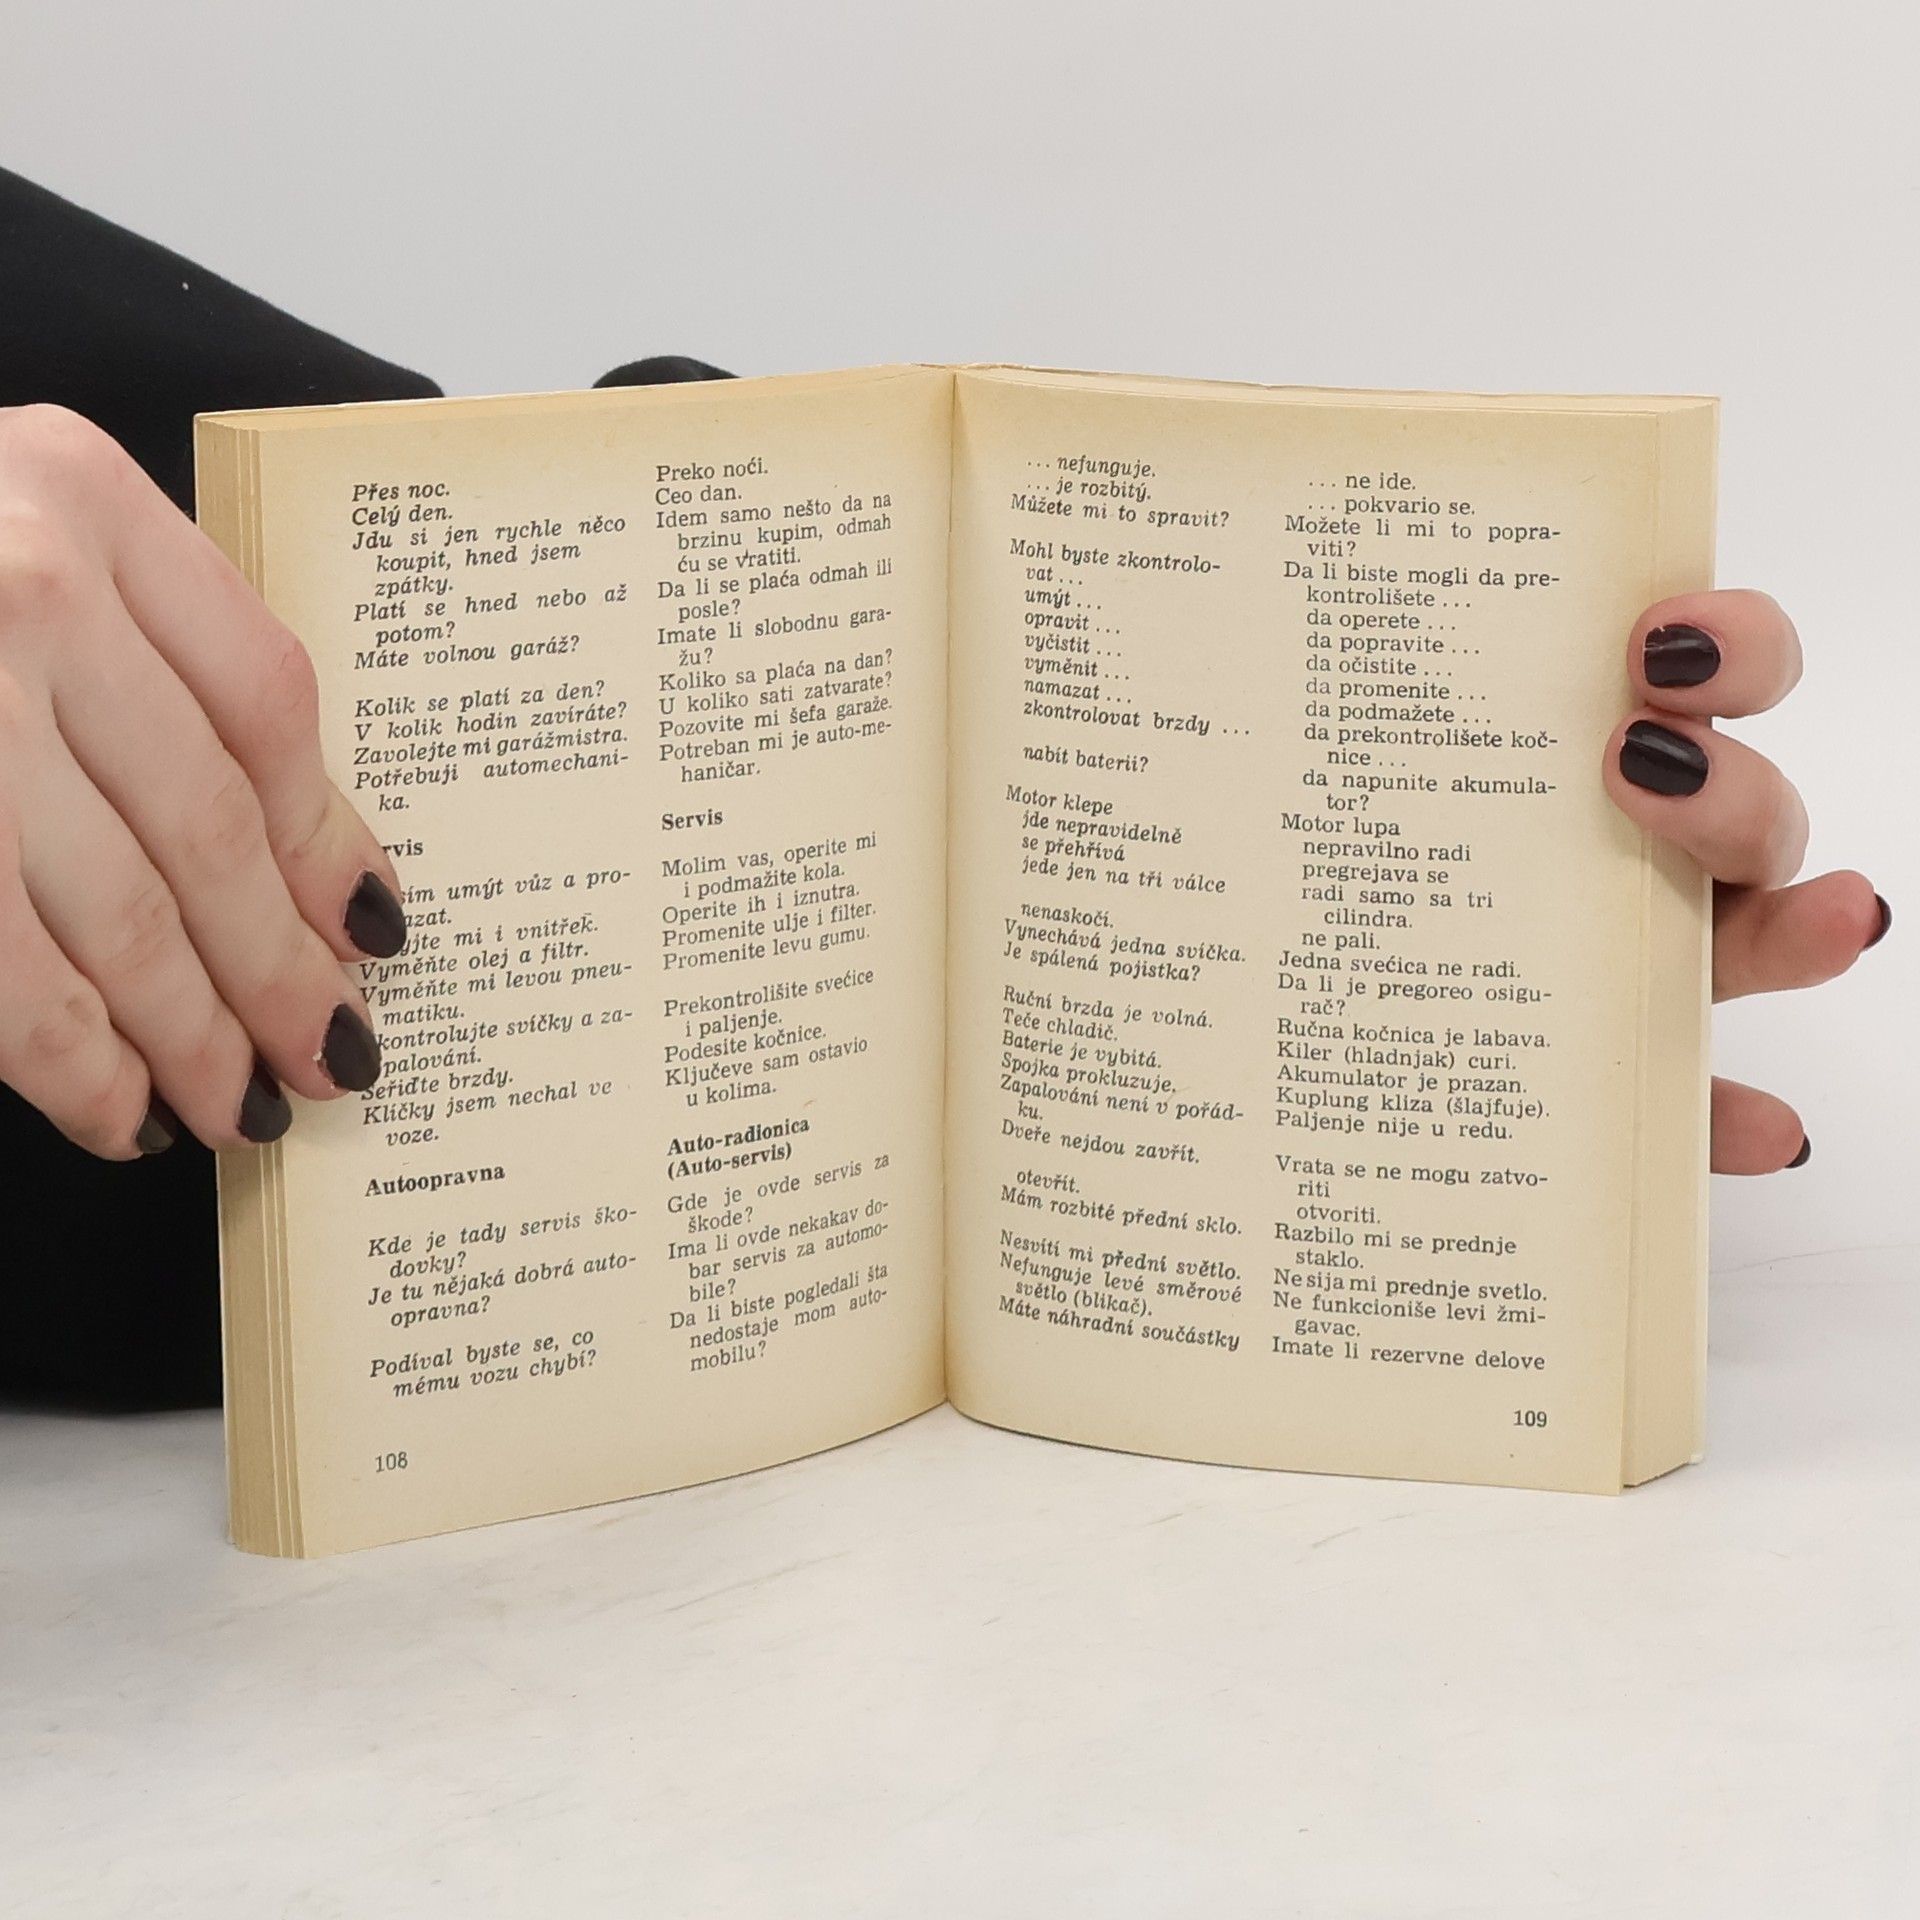 Přes noc.
Celý den.
Jdu si jen rychle něco
koupit, hned jsem
zpátky.
Platí se hned nebo až
potom?
Máte volnou garáž?
Kolik se platí za den?
V kolik hodin zavíráte?
Zavolejte mi garážmistra.
Potřebuji automechani-
ka.
umýt vůz a pro-
mi i vnitřek.
Vyměňte olej a filtr.
Vyměňte mi levou pneu-
matiku.
svíčky a za-
Seřiďte brzdy.
Klíčky jsem nechal ve
voze.
Autoopravna
Kde je tady servis ško-
dovky?
Je tu nějaká dobrá auto-
opravna?
Podíval byste se, co
mému vozu chybí?
108
Preko noći.
Ceo dan.
Idem samo nešto da na
brzinu kupim, odmah
ću se vratiti.
Da li se plaća odmah ili
posle?
Imate li slobodnu gara-
žu?
Koliko sa plaća na dan?
U koliko sati zatvarate?
Pozovite mi šefa garaže.
Potreban mi je auto-me-
haničar.
Servis
Molim vas, operite mi
i podmažite kola.
Operite ih i iznutra.
Promenite ulje i filter.
Promenite levu gumu.
Prekontrolišite svećice
i paljenje.
Podesite kočnice.
Ključeve sam ostavio
u kolima.
Auto-radionica
(Auto-servis)
Gde je ovde servis za
škode?
Ima li ovde nekakav do-
bar servis za automo-
bile?
Da li biste pogledali šta
nedostaje mom auto-
mobilu?
... nefunguje.
... je rozbitý.
Můžete mi to spravit?
Mohl byste zkontrolo-
vat ...
umýt ...
opravit ...
vyčistit ...
vyměnit ...
namazat ...
zkontrolovat brzdy ...
nabít baterii?
Motor klepe
jde nepravidelně
se přehřívá
jede jen na tři válce
nenaskočí.
Vynechává jedna svíčka.
Je spálená pojistka?
Ruční brzda je volná.
Teče chladič.
Baterie je vybitá.
Spojka prokluzuje.
Zapalování není v pořád-
ku.
Dveře nejdou zavřít.
otevřít.
Mám rozbité přední sklo.
Nesvítí mi přední světlo.
Nefunguje levé směrové
světlo (blikač).
Máte náhradní součástky
... ne ide.
... pokvario se.
Možete li mi to popra-
viti?
Da li biste mogli da pre-
kontrolišete ...
da operete ...
da popravite ...
da očistite ...
da promenite ...
da podmažete ...
da prekontrolišete koč-
nice ...
da napunite akumula-
tor?
Motor lupa
nepravilno radi
pregrejava se
radi samo sa tri
cilindra.
ne pali.
Jedna svećica ne radi.
Da li je pregoreo osigu-
rač?
Ručna kočnica je labava.
Kiler (hladnjak) curi.
Akumulator je prazan.
Kuplung kliza (šlajfuje).
Paljenje nije u redu.
Vrata se ne mogu zatvo-
riti
otvoriti.
Razbilo mi se prednje
staklo.
Ne sija mi prednje svetlo.
Ne funkcioniše levi žmi-
gavac.
Imate li rezervne delove
109